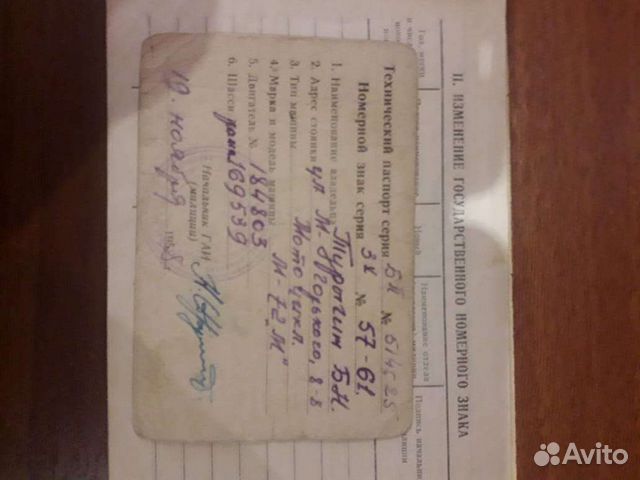 II. ИЗМЕНЕНИЕ ГОСУДАРСТВЕННОГО НОМЕРНОГО ЗНАКА
Новый
Наименование отдела
Подпись начальни
Технический паспорт серия БЖ № 514525
Номерной знак серия ЗК № 57-61
1. Наименование владельца Турпин Б.Н.
2. Адрес стоянки ул М-Горького, 8-8
3. Тип машины Мотоцикл
4. Марка и модель машины М-72М"
5. Двигатель № 184803
6. Шасси рама 169539
Начальник ГАИ
(милиции)
19. ноября 1958 г.
Avito